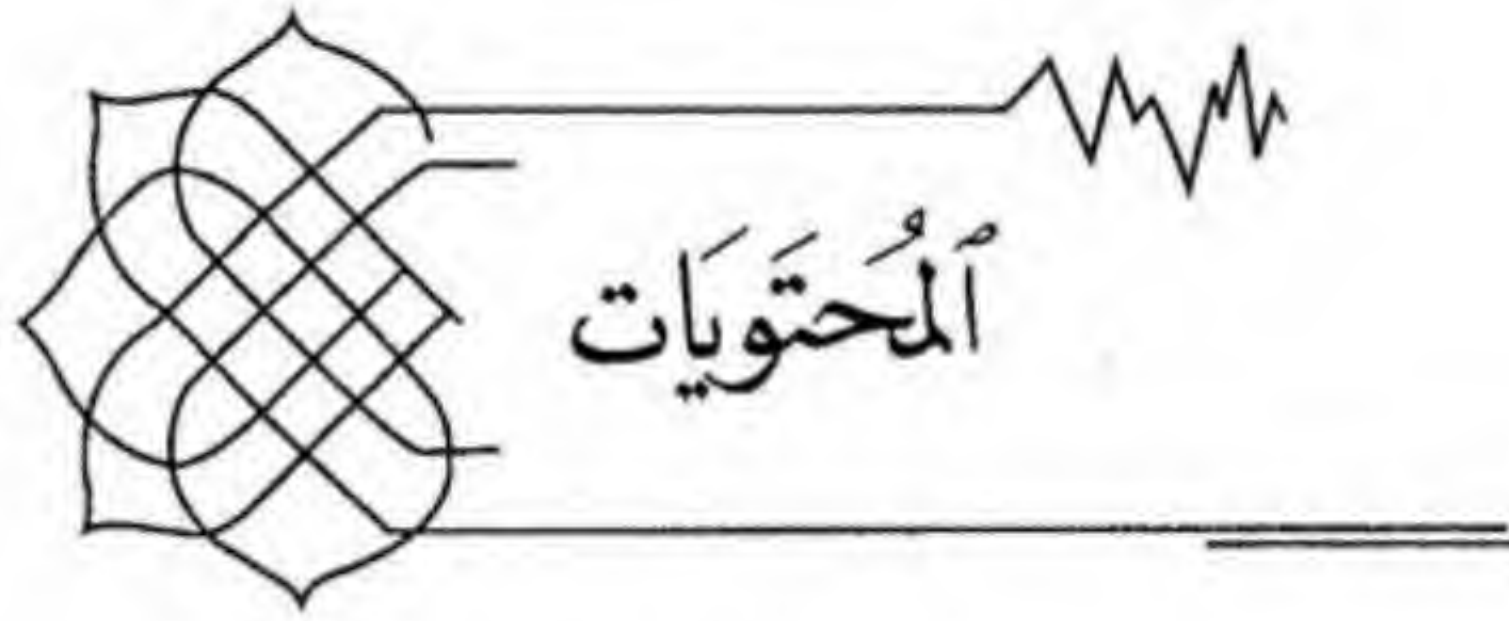 ٱلمُحتَوَيَات